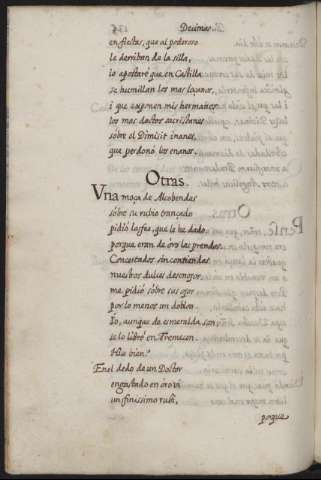 Decimas.
en fiestas, que al poderoso
le derriban de la silla,
io apostaré que en Castilla
se humillan los mas loçanos,
i que exponen mis hermanos
los mas doctos sacristanes
sobre el Dimisit inanes,
que perdonó los enanos.
Otras.
Vna moça de Alcobendas
sobre su rubio trançado
pidió la fee, que le he dado
porque eran de oro las prendas.
Concertados sin contiendas
nuestros dulces desenojos
me pidió sobre sus ojos
por lo menos un doblon
Io, aunque de esmeralda son
se lo libré en Tremecen.
Hice bien?
En el dedo de un Doctor
engastado en oro vi
un finissimo rubí,
porque